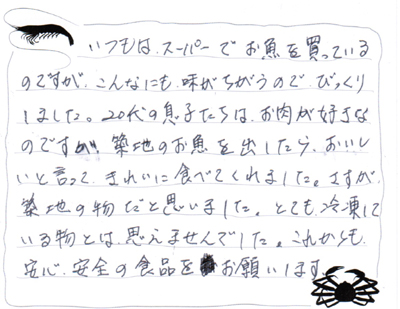 いつもは、スーパーでお魚を買っている
のですが、こんなにも、味がちがうので、びっくり
しました。20代の息子たちは、お肉が好きな
のですが、築地のお魚を出したら、おいし
いと言って、きれいに食べてくれました。さすが、
築地の物だと思いました。とても、冷凍して
いる物とは、思えませんでした。これからも、
安心、安全の食品をお願いします